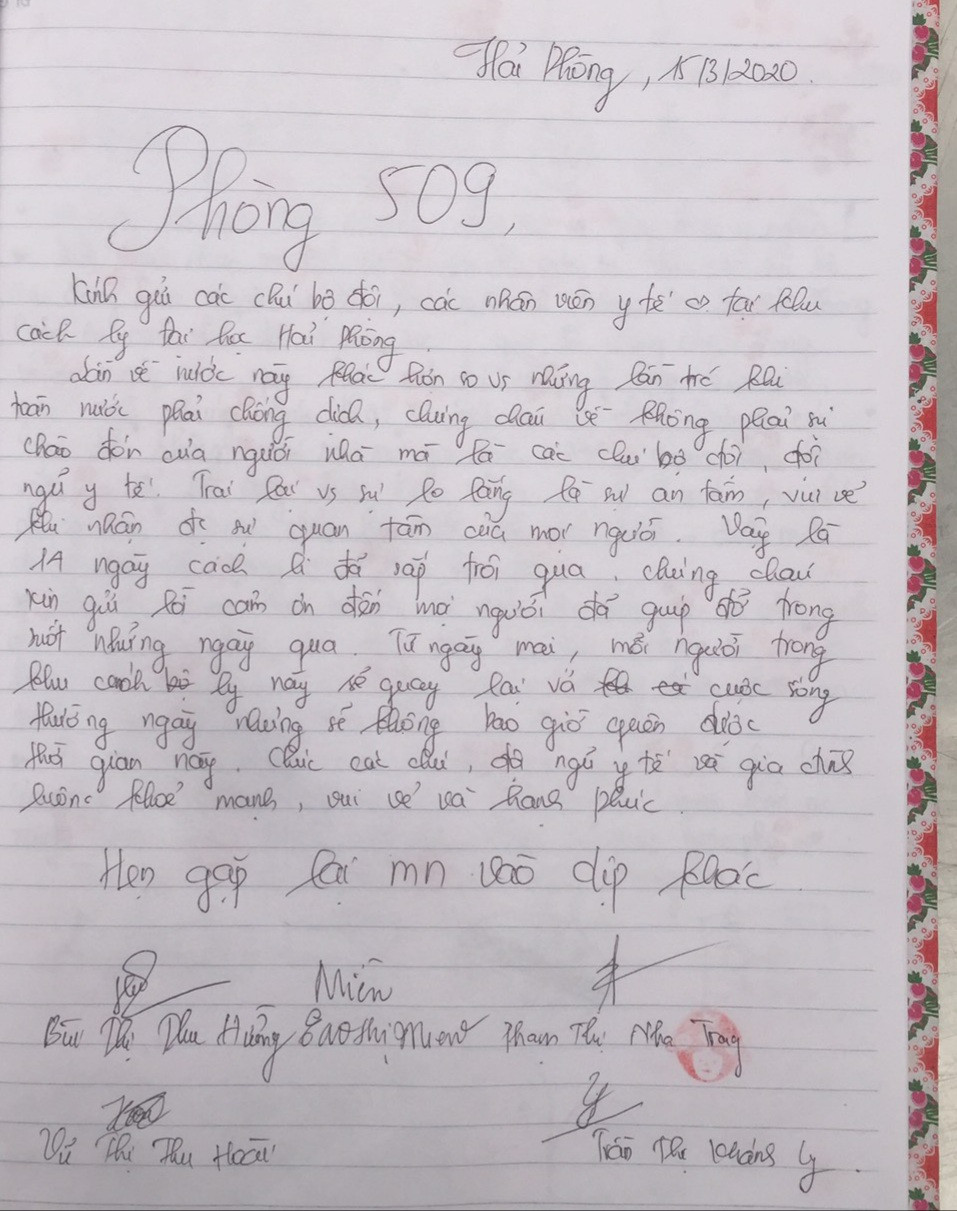 Hải Phòng, 15/3/2020.
Phòng 509,
Kính gửi các chú bộ đội, các nhân viên y tế ở tại khu
cách ly đại học Hải Phòng.
Lần về nước này khác hơn so vs những lần trc khi
toàn nước phải chống dịch, chúng cháu về không phải sự
chào đón của người nhà mà là các chú bộ đội, đội
ngũ y tế. Trái lại vs sự lo lắng là sự an tâm, vui vẻ
khi nhận đc sự quan tâm của mọi người. Vậy là
14 ngày cách li đã sắp trôi qua, chúng cháu
xin gửi lời cảm ơn đến mọi người đã giúp đỡ trong
suốt những ngày qua. Từ ngày mai, mỗi người trong
khu cách ly này sẽ quay lại với cuộc sống
thường ngày nhưng sẽ không bao giờ quên được
thời gian này. Chúc các chú, đội ngũ y tế và gia đình
luôn khoẻ mạnh, vui vẻ và hạnh phúc.
Hẹn gặp lại mn vào dịp khác.
Miên
Bùi Thị Thu Hường Phạm Thị Nha Trang
Vũ Thị Thu Hoài Trần Thị Khánh Ly.